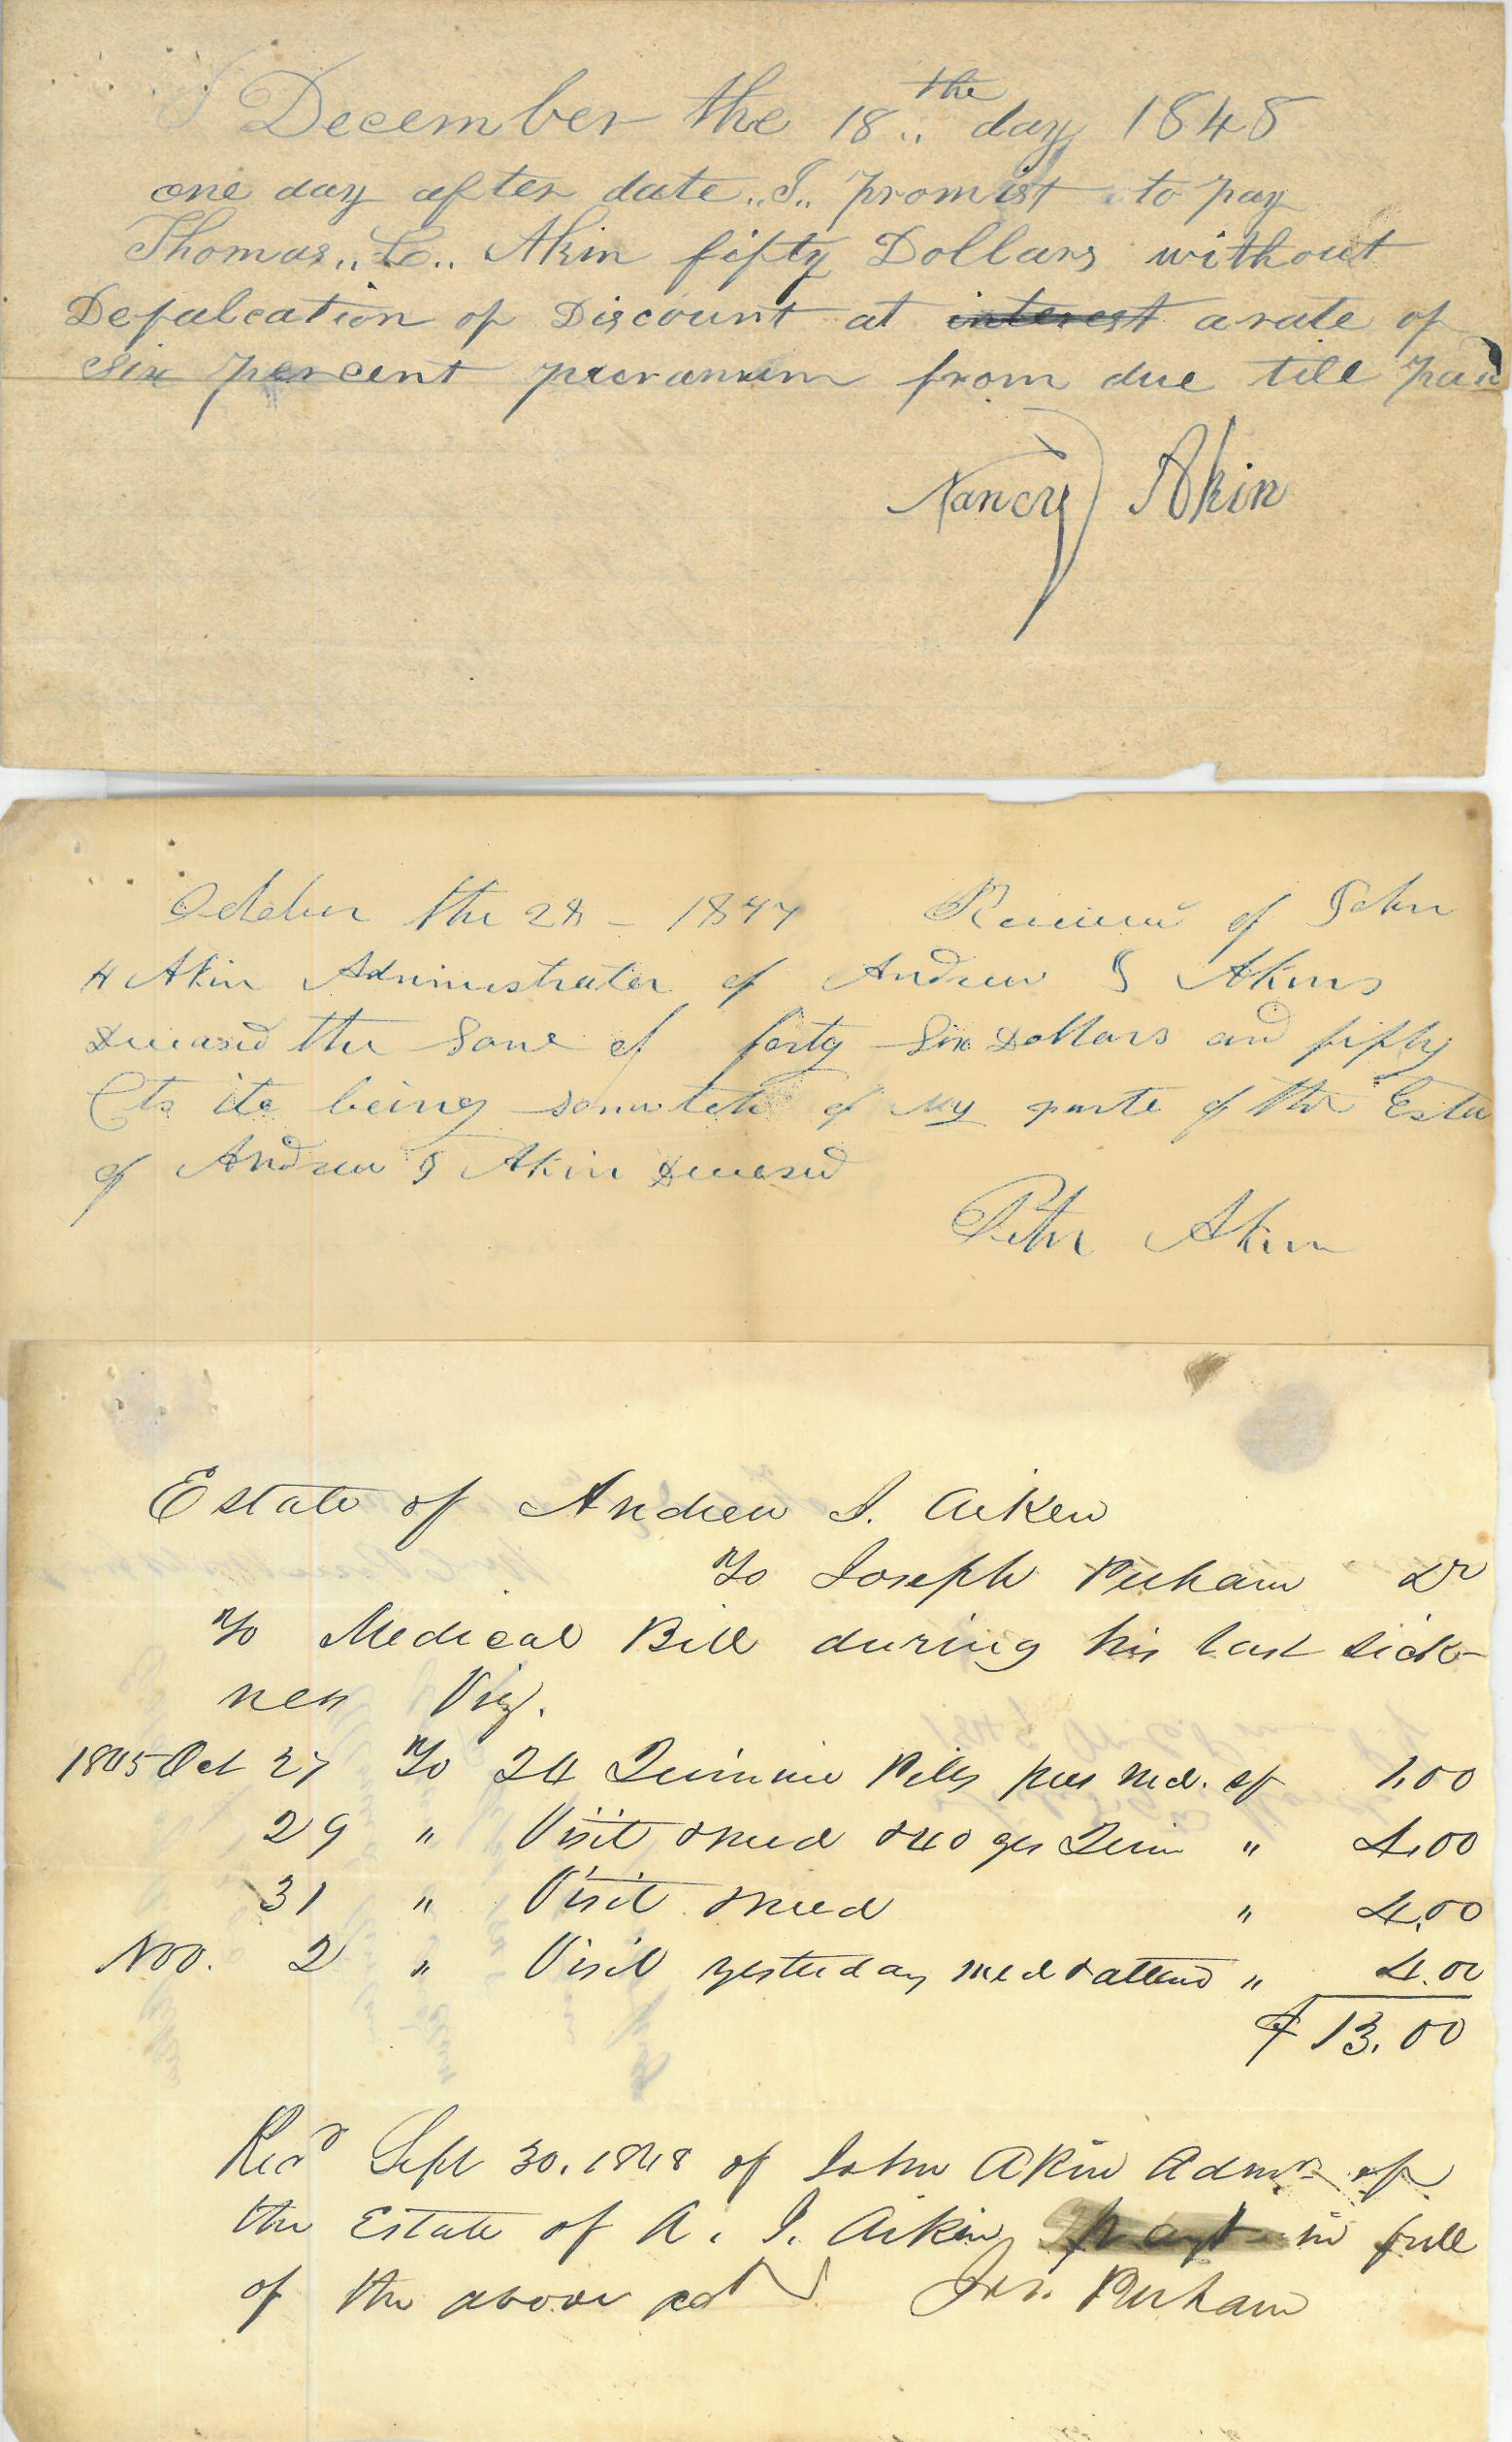 December the 18.. the day 1848
one day after date ,,I,, promist to pay
Thomas ,, L.. Akin fifty Dollars without
Defalcation of Discount at interest a rate of
six percent perannum from due till paid
Nancy Akin
October the 28 - 1847 Received of John
H Akin Administrator of Andrew J Akins
Deceased the Some of forty Six Dollars and fifty
Cts ite being somutch of my parte of the Esta
of Andrew J Akin Deceased
Peter Akin
Estate of Andrew J. Aiken
To Joseph Perham Dr
To Medical Bill during his last sick-
ness Viz.
1845 Oct 27 To 24 Quinine Pills pus med. of 1.00
29 " Visit & med & 40 grs Quin " 4.00
31 " Visit & med " 4.00
Nov. 2 " Visit yesterday med & attend " 4.00
$13.00
Recd Sept 30. 1848 of John Akin Admr of
the Estate of A. J. Aikin in full
of the above act Jos. Perham